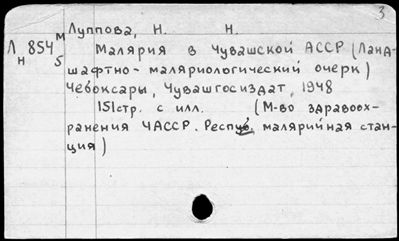 3
Луппова, Н. Н.
Л 854 м
н 5
Малярия в Чувашской АССР (Ланд-
шафтно-маляриологический очерк)
Чебоксары, Чувашгосиздат, 1948
151стр. с илл. (М-во здравоох-
ранения ЧАССР. Респуб. малярийная стан-
ция)